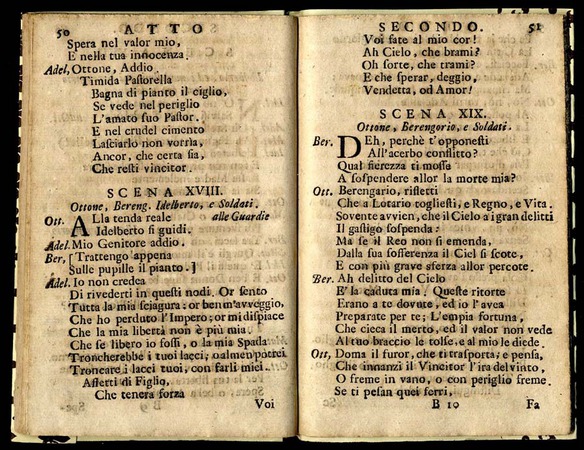 50 ATTO
Spera nel valor mio,
E nella tua innocenza.
Adel, Ottone, Addio.
Timida Pastorella
Bagna di pianto il ciglio,
Se vede nel periglio
L'amato suo Pastor.
E nel crudel cimento
Lasciarlo non vorria,
Ancor, che certa sia,
Che resti vincitor.
SCENA XVIII.
Ottone, Bereng. Idelberto, e Soldati.
Ott. ALla tenda reale alle Guardie
Idelberto si guidi.
Adel. Mio Genitore addio.
Ber, [Trattengo appena
Sulle pupille il pianto.]
Adel. Io non credea
Di rivederti in questi nodi. Or sento
Tutta la mia sciagura: or ben m'avveggio,
Che ho perduto l'Impero; or mi dispiace
Che la mia libertà non è più mia.
Che se libero io fossi, o la mia Spada
Troncherebbe i tuoi lacci; o almen potrei
Troncare i lacci tuoi, con farli miei.
Affetti di Figlio,
Che tenera forza
Voi
SECONDO. 51
Voi fate al mio cor!
Ah Cielo, che brami?
Oh sorte, che trami?
E che sperar, deggio,
Vendetta, od Amor!
SCENA XIX.
Ottone, Berengorio, e Soldati.
Ber. DEh, perchè t'opponesti
All'acerbo conflitto?
Qual fierezza ti mossa
A sospendere allor la morte mia?
Ott. Berengario, rifletti
Che a Lotario togliesti, e Regno, e Vita.
Sovente avvien, che il Cielo a i gran delitti
Il gastigo sospenda:
Ma se il Reo non si emenda,
Dalla sua sofferenza il Ciel si scote,
E con più grave sferza allor percote.
Ber. Ah delitto del Cielo
E' la caduta mia! Queste ritorte
Erano a te dovute, ed io l'avea
Preparate per te; L'empia fortuna,
Che cieca il merto, ed il valor non vede
Al tuo braccio le tolse, e al mio le diede.
Ott, Doma il furor, che ti trasporta; e pensa,
Che innanzi il Vincitor l'ira del vinto,
O freme in vano, o con periglio freme.
Se ti pesan quei ferri,
B 10 Fa